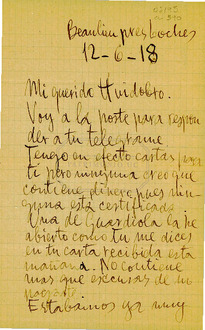 Beaulieu pres Loches
12-6-18
Mi querido Huidobro.
Voy a la poste para respon
der a tu telegrame
Tengo en efecto cartas para
ti pero ninguna creo que
contiene dinero pues nin-
guna está certificada
Una de Guardiola la he
abierto como tu me dices
en tu carta recibida esta
mañana. No contiene
mas que excusas de un
Estabamos ya muy